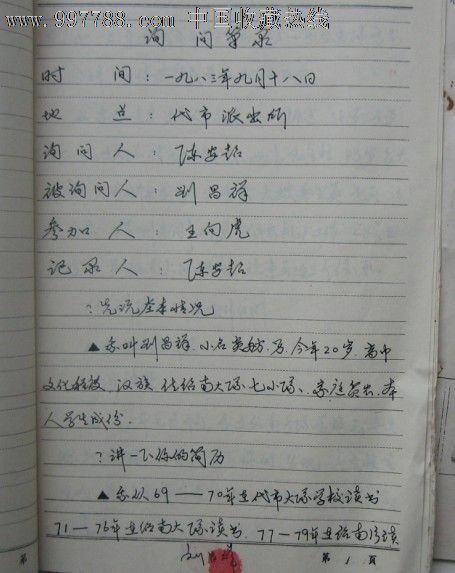 www.997788.com 中国收藏热线
询 问笔录
时 间：一九八三年九月十八日
地 点：代市派出所
询问人：陈安韶
被询问人：刘昌祥
参加人：王向虎
记录人：陈安韶
？先说基本情况
▲ 我叫刘昌祥 小名 男 今年20岁 高中
文化程度 汉族 住 南大队七小队、家庭贫农 本
人学生成份.
？讲一下你的简历
▲我从69——70年在代市大队学校读书
71—76年在 南大队读书 77—79年在 南 读
刘昌祥
第 1 页
第